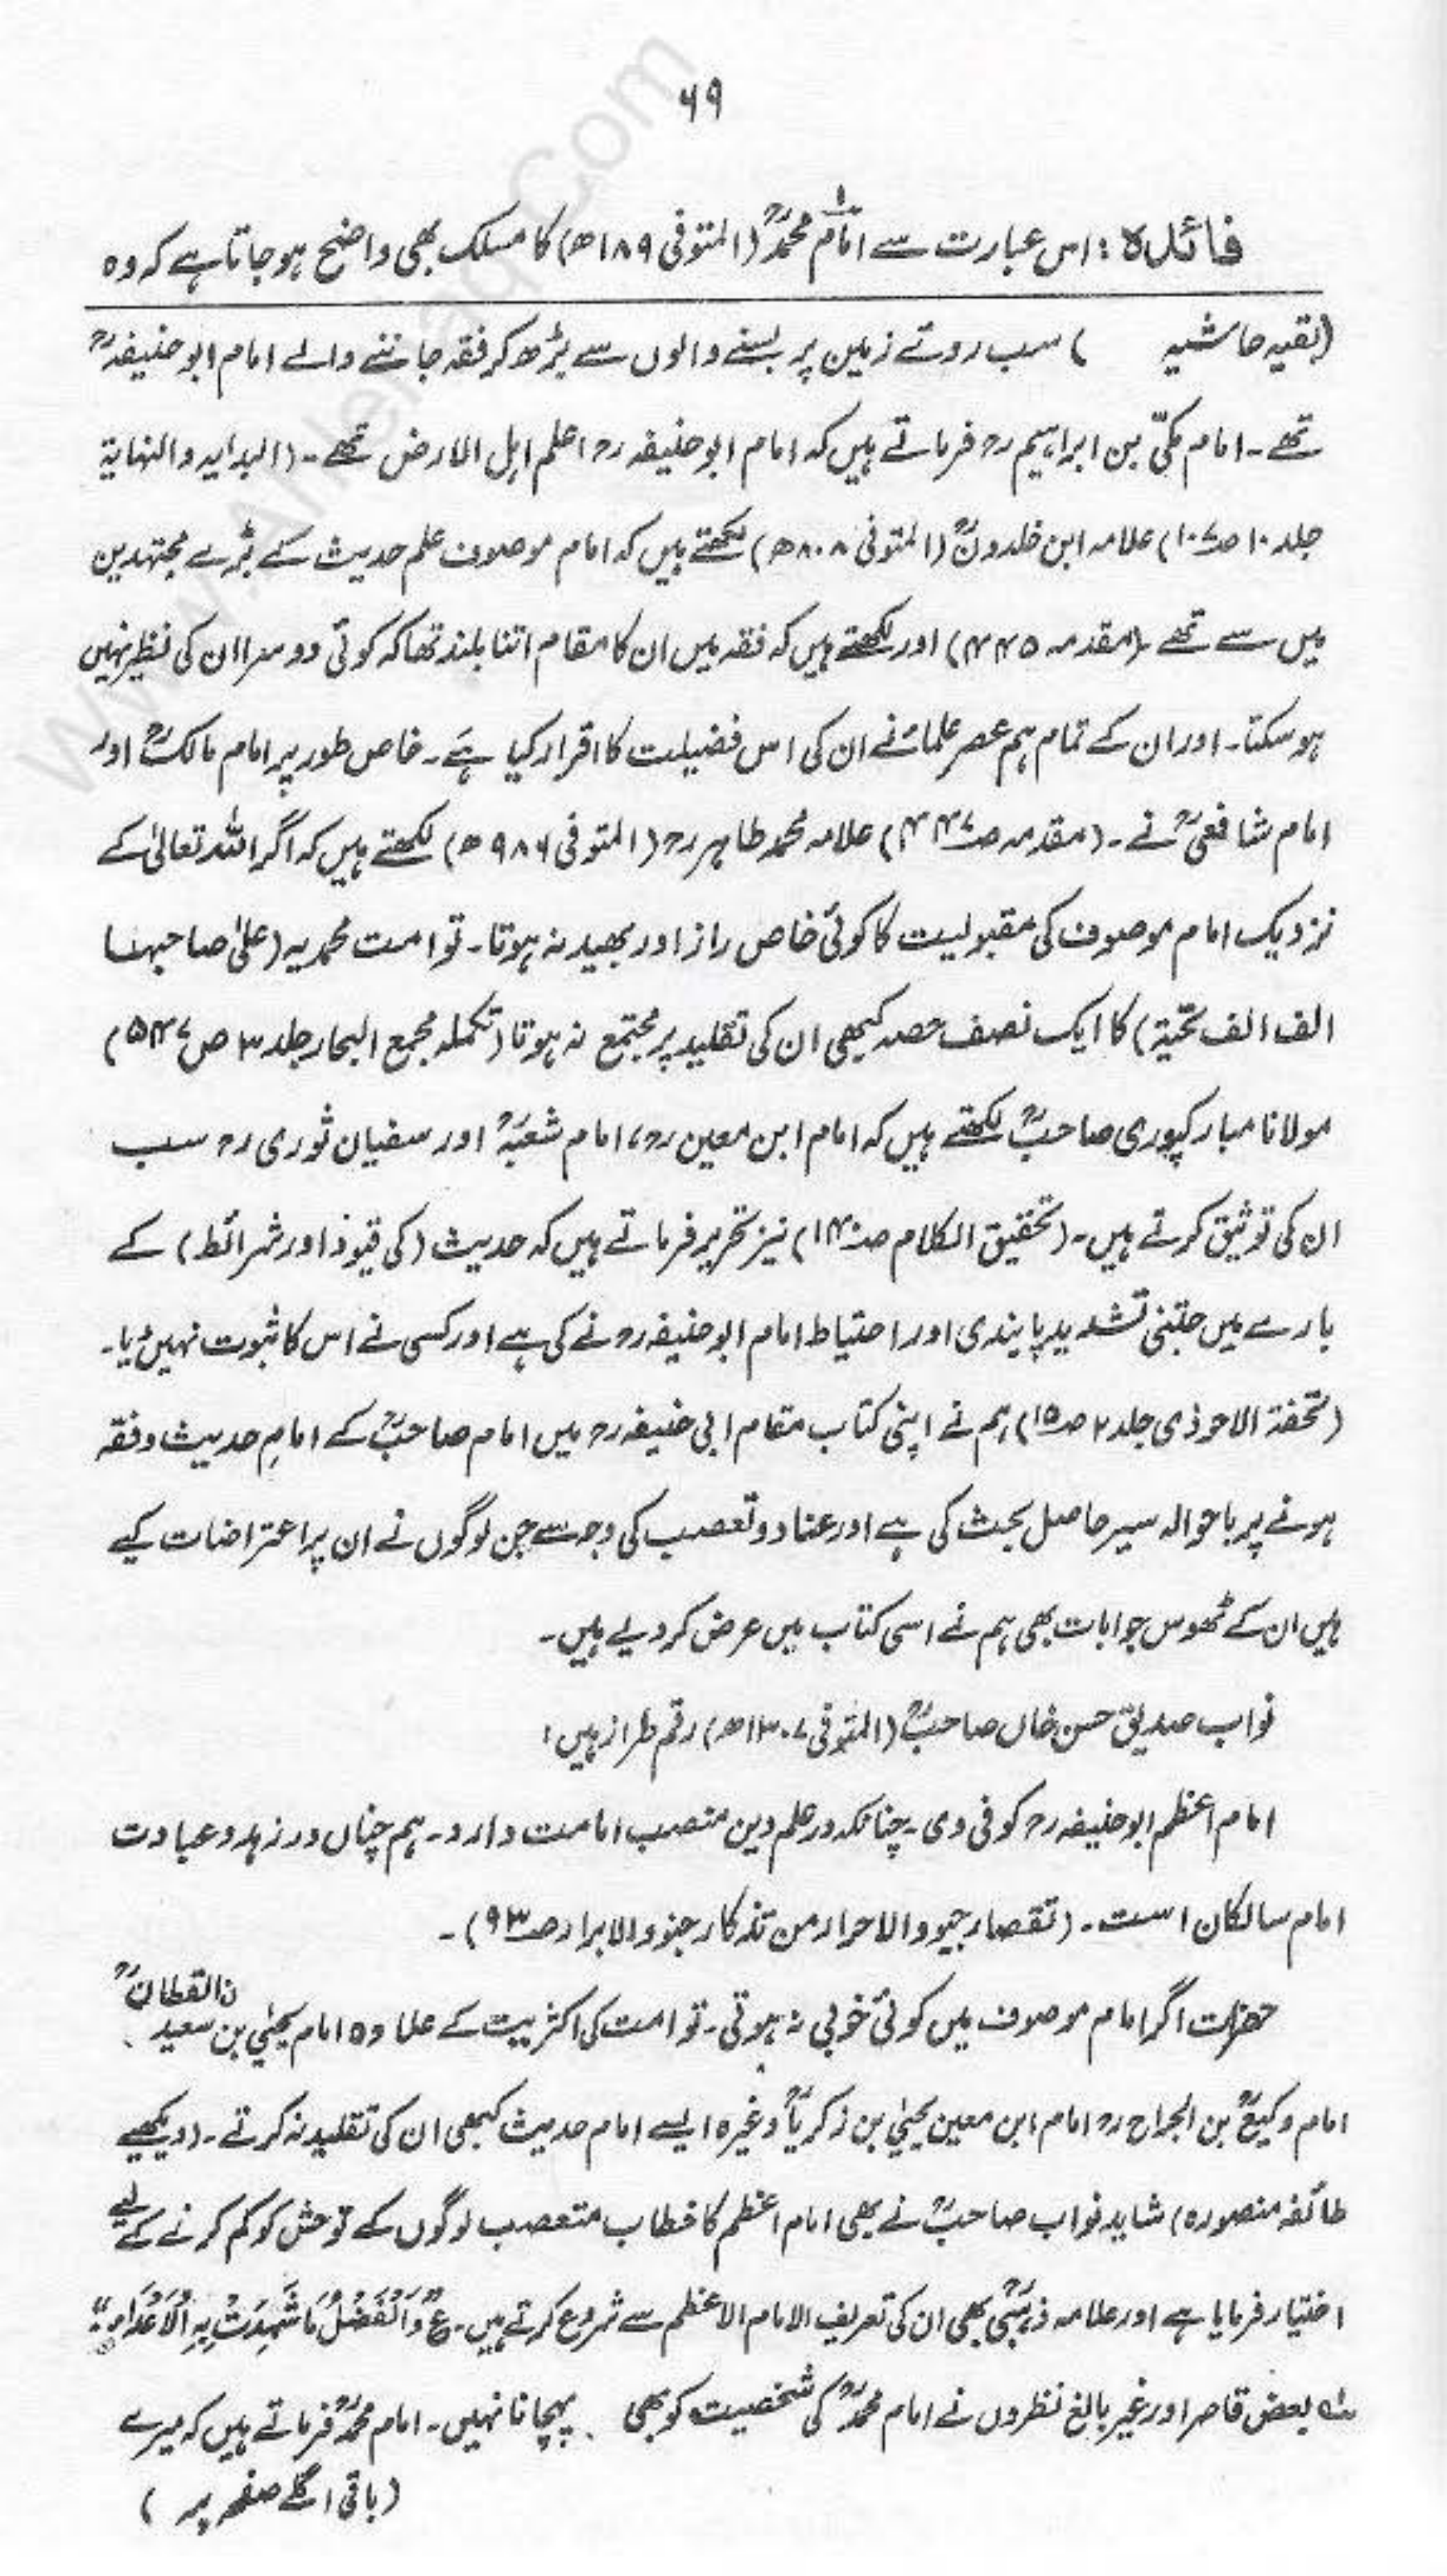 ۶۹
فائدہ: اس عبارت سے امام محمدؒ (المتوفی ۱۸۹ھ) کا مسلک بھی واضح ہو جاتا ہے کہ وہ
(بقیہ حاشیہ ) سب روئے زمین پر بسنے والوں سے بڑھ کر فقہ جاننے والے امام ابو حنیفہؒ
تھے۔ امام مکیّ بن ابراہیم رح فرماتے ہیں کہ امام ابو حنیفہ رح اعلم اہل الارض تھے۔ (البدایہ والنہایۃ
جلد ۱۰ صـ۱۰۷) علامہ ابن خلدونؒ (المتوفی ۸۰۸ھ) لکھتے ہیں کہ امام موصوف علم حدیث کے بڑے مجتہدین
میں سے تھے (مقدمہ ۴۴۵) اور لکھتے ہیں کہ فقہ میں ان کا مقام اتنا بلند تھا کہ کوئی دوسرا ان کی نظیر نہیں
ہو سکتا۔ اور ان کے تمام ہم عصر علماء نے ان کی اس فضیلت کا اقرار کیا ہے۔ خاص طور پر امام مالکؒ اور
امام شافعیؒ نے۔ (مقدمہ صـ۴۴۷) علامہ محمد طاہر رح (المتوفی ۹۸۶ھ) لکھتے ہیں کہ اگر اللہ تعالیٰ کے
نزدیک امام موصوف کی مقبولیت کا کوئی خاص راز اور بھید نہ ہوتا۔ تو امت محمدیہ (علیٰ صاحبہا
الف الف تحیّۃ) کا ایک نصف حصہ کبھی ان کی تقلید پر مجتمع نہ ہوتا (تکملہ مجمع البحار جلد ۳ ص ۵۴۷)
مولانا مبارکپوری صاحبؒ لکھتے ہیں کہ امام ابن معین رح، امام شعبہؒ اور سفیان ثوری رح سب
ان کی توثیق کرتے ہیں۔ (تحقیق الکلام صـ۱۴۰) نیز تحریر فرماتے ہیں کہ حدیث (کی قیود اور شرائط) کے
بارے میں جتنی تشدید پابندی اور احتیاط امام ابو حنیفہ رح نے کی ہے اور کسی نے اس کا ثبوت نہیں دیا۔
(تحفۃ الاحوذی جلد ۲ صـ۱۵) ہم نے اپنی کتاب مقام ابی حنیفہ رح میں امام صاحبؒ کے امامِ حدیث و فقہ
ہونے پر باحوالہ سیر حاصل بحث کی ہے اور عناد و تعصب کی وجہ سے جن لوگوں نے ان پر اعتراضات کیے
ہیں ان کے ٹھوس جوابات بھی ہم نے اسی کتاب میں عرض کر دیے ہیں۔
نواب صدیق حسن خاں صاحبؒ (المتوفی ۱۳۰۷ھ) رقم طراز ہیں:
امام اعظم ابو حنیفہ رح کوفی وی۔ چنانکہ در علم دین منصب امامت دارد۔ ہم چناں در زہد و عبادت
امام سالکان است۔ (تقصار جیود الاحرار من تذکار جنود الابرار صـ۹۳)۔
حضرات اگر امام موصوف میں کوئی خوبی نہ ہوتی۔ تو امت کی اکثریت کے علاوہ امام یحییٰ بن سعید ن القطانؒ
امام وکیعؒ بن الجراح رح امام ابن معین یحییٰ بن زکریاؒ وغیرہ ایسے امام حدیث کبھی ان کی تقلید نہ کرتے۔ (دیکھیے
طائفہ منصورہ) شاید نواب صاحبؒ نے بھی امام اعظم کا خطاب متعصب لوگوں کے توحش کو کم کرنے کے لیے
اختیار فرمایا ہے اور علامہ ذہبیؒ بھی ان کی تعریف الامام الاعظم سے شروع کرتے ہیں۔ ع وَالْفَضْلُ مَا شَهِدَتْ بِهِ الْاَعْدَاءُ
ـ۱ بعض قاصر اور غیر بالغ نظروں نے امام محمدؒ کی شخصیت کو بھی پہچانا نہیں۔ امام محمدؒ فرماتے ہیں کہ میرے
(باقی اگلے صفحہ پر )